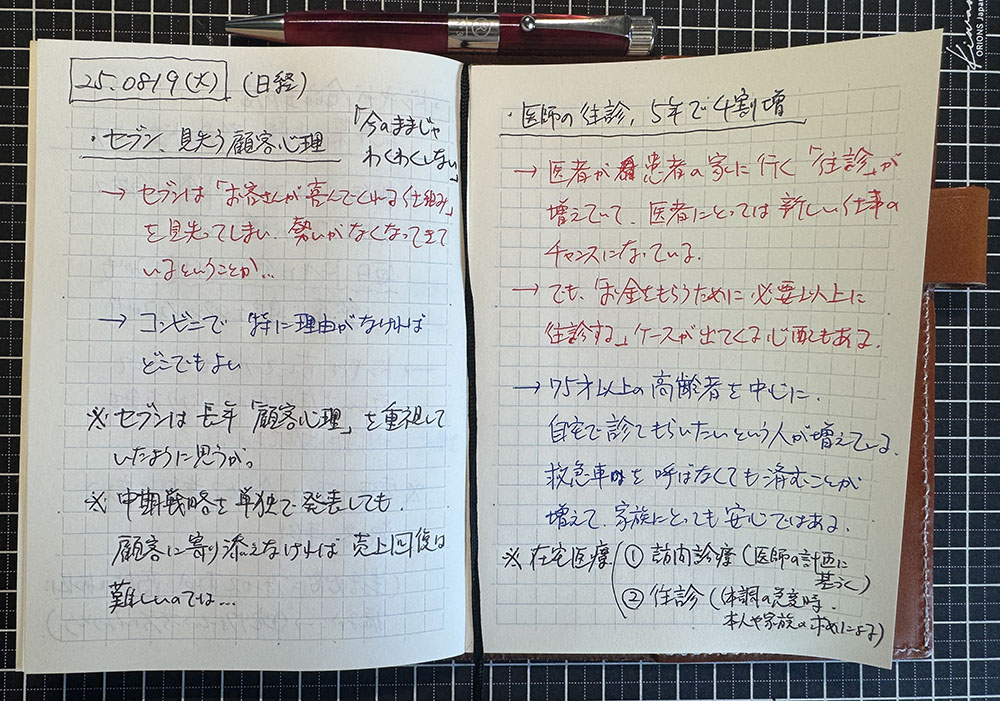 25.0819(火) (日経)
・セブン、見失う顧客心理
「今のままじゃ
わくわくしない」
→ セブンは「お客さんが喜んでくれる仕組み」
を見失ってしまい、勢いがなくなってきて
いるということか…
→ コンビニで 特に理由がなければ
どこでもよい
※ セブンは 長年「顧客心理」を重視して
いたように思うが。
※ 中期戦略を単独で発表しても、
顧客に寄り添えなければ 売上回復は
難しいのでは…
・医師の往診、5年で4割増
→ 医者が 患者の家に行く「往診」が
増えていて、医者にとっては 新しい仕事の
チャンスになっている。
→ でも、「お金をもらうために 必要以上に
往診する」ケースが出てくる心配もある。
→ 75才以上の高齢者を中心に、
自宅で診てもらいたいという人が増えている。
救急車を呼ばなくても済むことが
増えて、家族にとっても安心ではある。
※ 在宅医療 ① 訪問診療(医師の計画に
基づく)
② 往診(体調の急変時、
本人や家族の求めによる)
ORIONS Japan